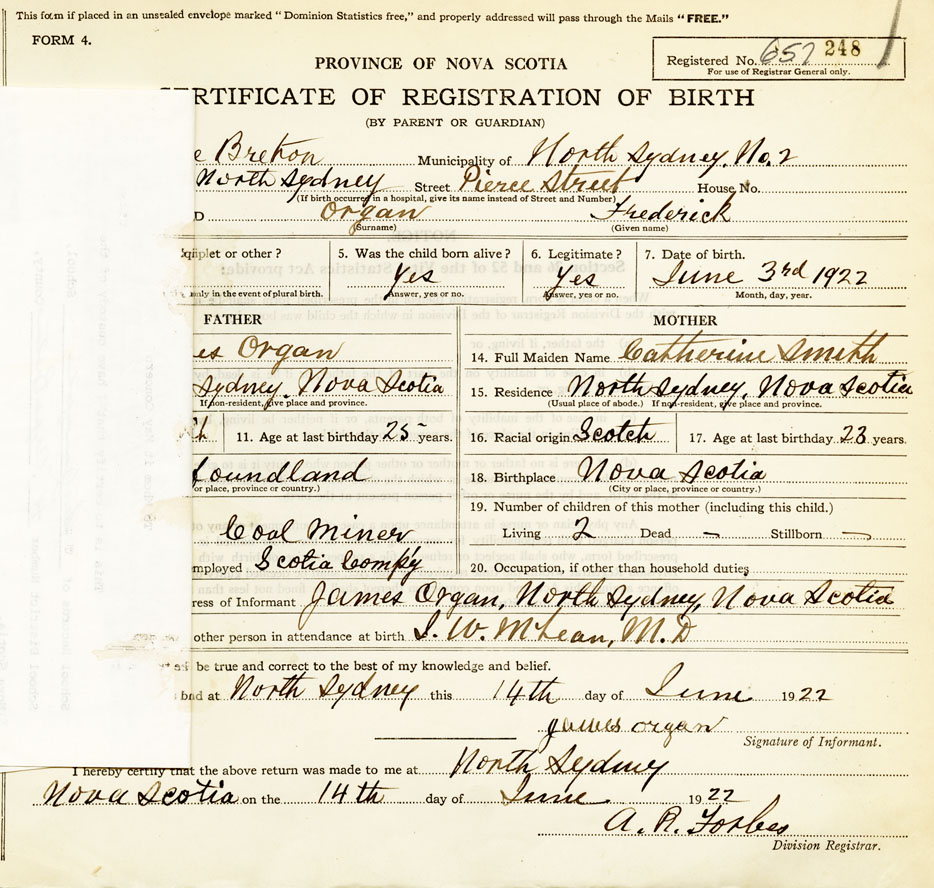 This form if placed in an unsealed envelope marked "Dominion Statistics free," and properly addressed will pass through the Mails "FREE."
FORM 4.
Registered No. 657 248
For use of Registrar General only.
PROVINCE OF NOVA SCOTIA
CERTIFICATE OF REGISTRATION OF BIRTH
(BY PARENT OR GUARDIAN)
e Breton Municipality of North Sydney, No. 2
North Sydney Street Pierce Street House No.
(If birth occurred in a hospital, give its name instead of Street and Number)
D Organ Frederick
(Surname) (Given name)
or other? 5. Was the child born alive? 6. Legitimate? 7. Date of birth.
Yes Yes June 3rd 1922
only in the event of plural birth. Answer, yes or no. Answer, yes or no. Month, day, year.
FATHER MOTHER
es Organ 14. Full Maiden Name Catherine Smith
Sydney, Nova Scotia 15. Residence North Sydney, Nova Scotia
If non-resident, give place and province. (Usual place of abode.) If non-resident, give place and province.
h 11. Age at last birthday 25 years. 16. Racial origin Scotch 17. Age at last birthday 23 years.
foundland 18. Birthplace Nova Scotia
or place, province or country.) (City or place, province or country.)
19. Number of children of this mother (including this child.)
Coal Miner Living 2 Dead - Stillborn -
mployed Scotia Compy 20. Occupation, if other than household duties
ress of Informant James Organ, North Sydney, Nova Scotia
other person in attendance at birth J. W. McLean, M.D
be true and correct to the best of my knowledge and belief.
at North Sydney this 14th day of June 1922
James Organ
Signature of Informant.
I hereby certify that the above return was made to me at North Sydney
Nova Scotia on the 14th day of June 1922
A. R. Forbes
Division Registrar.